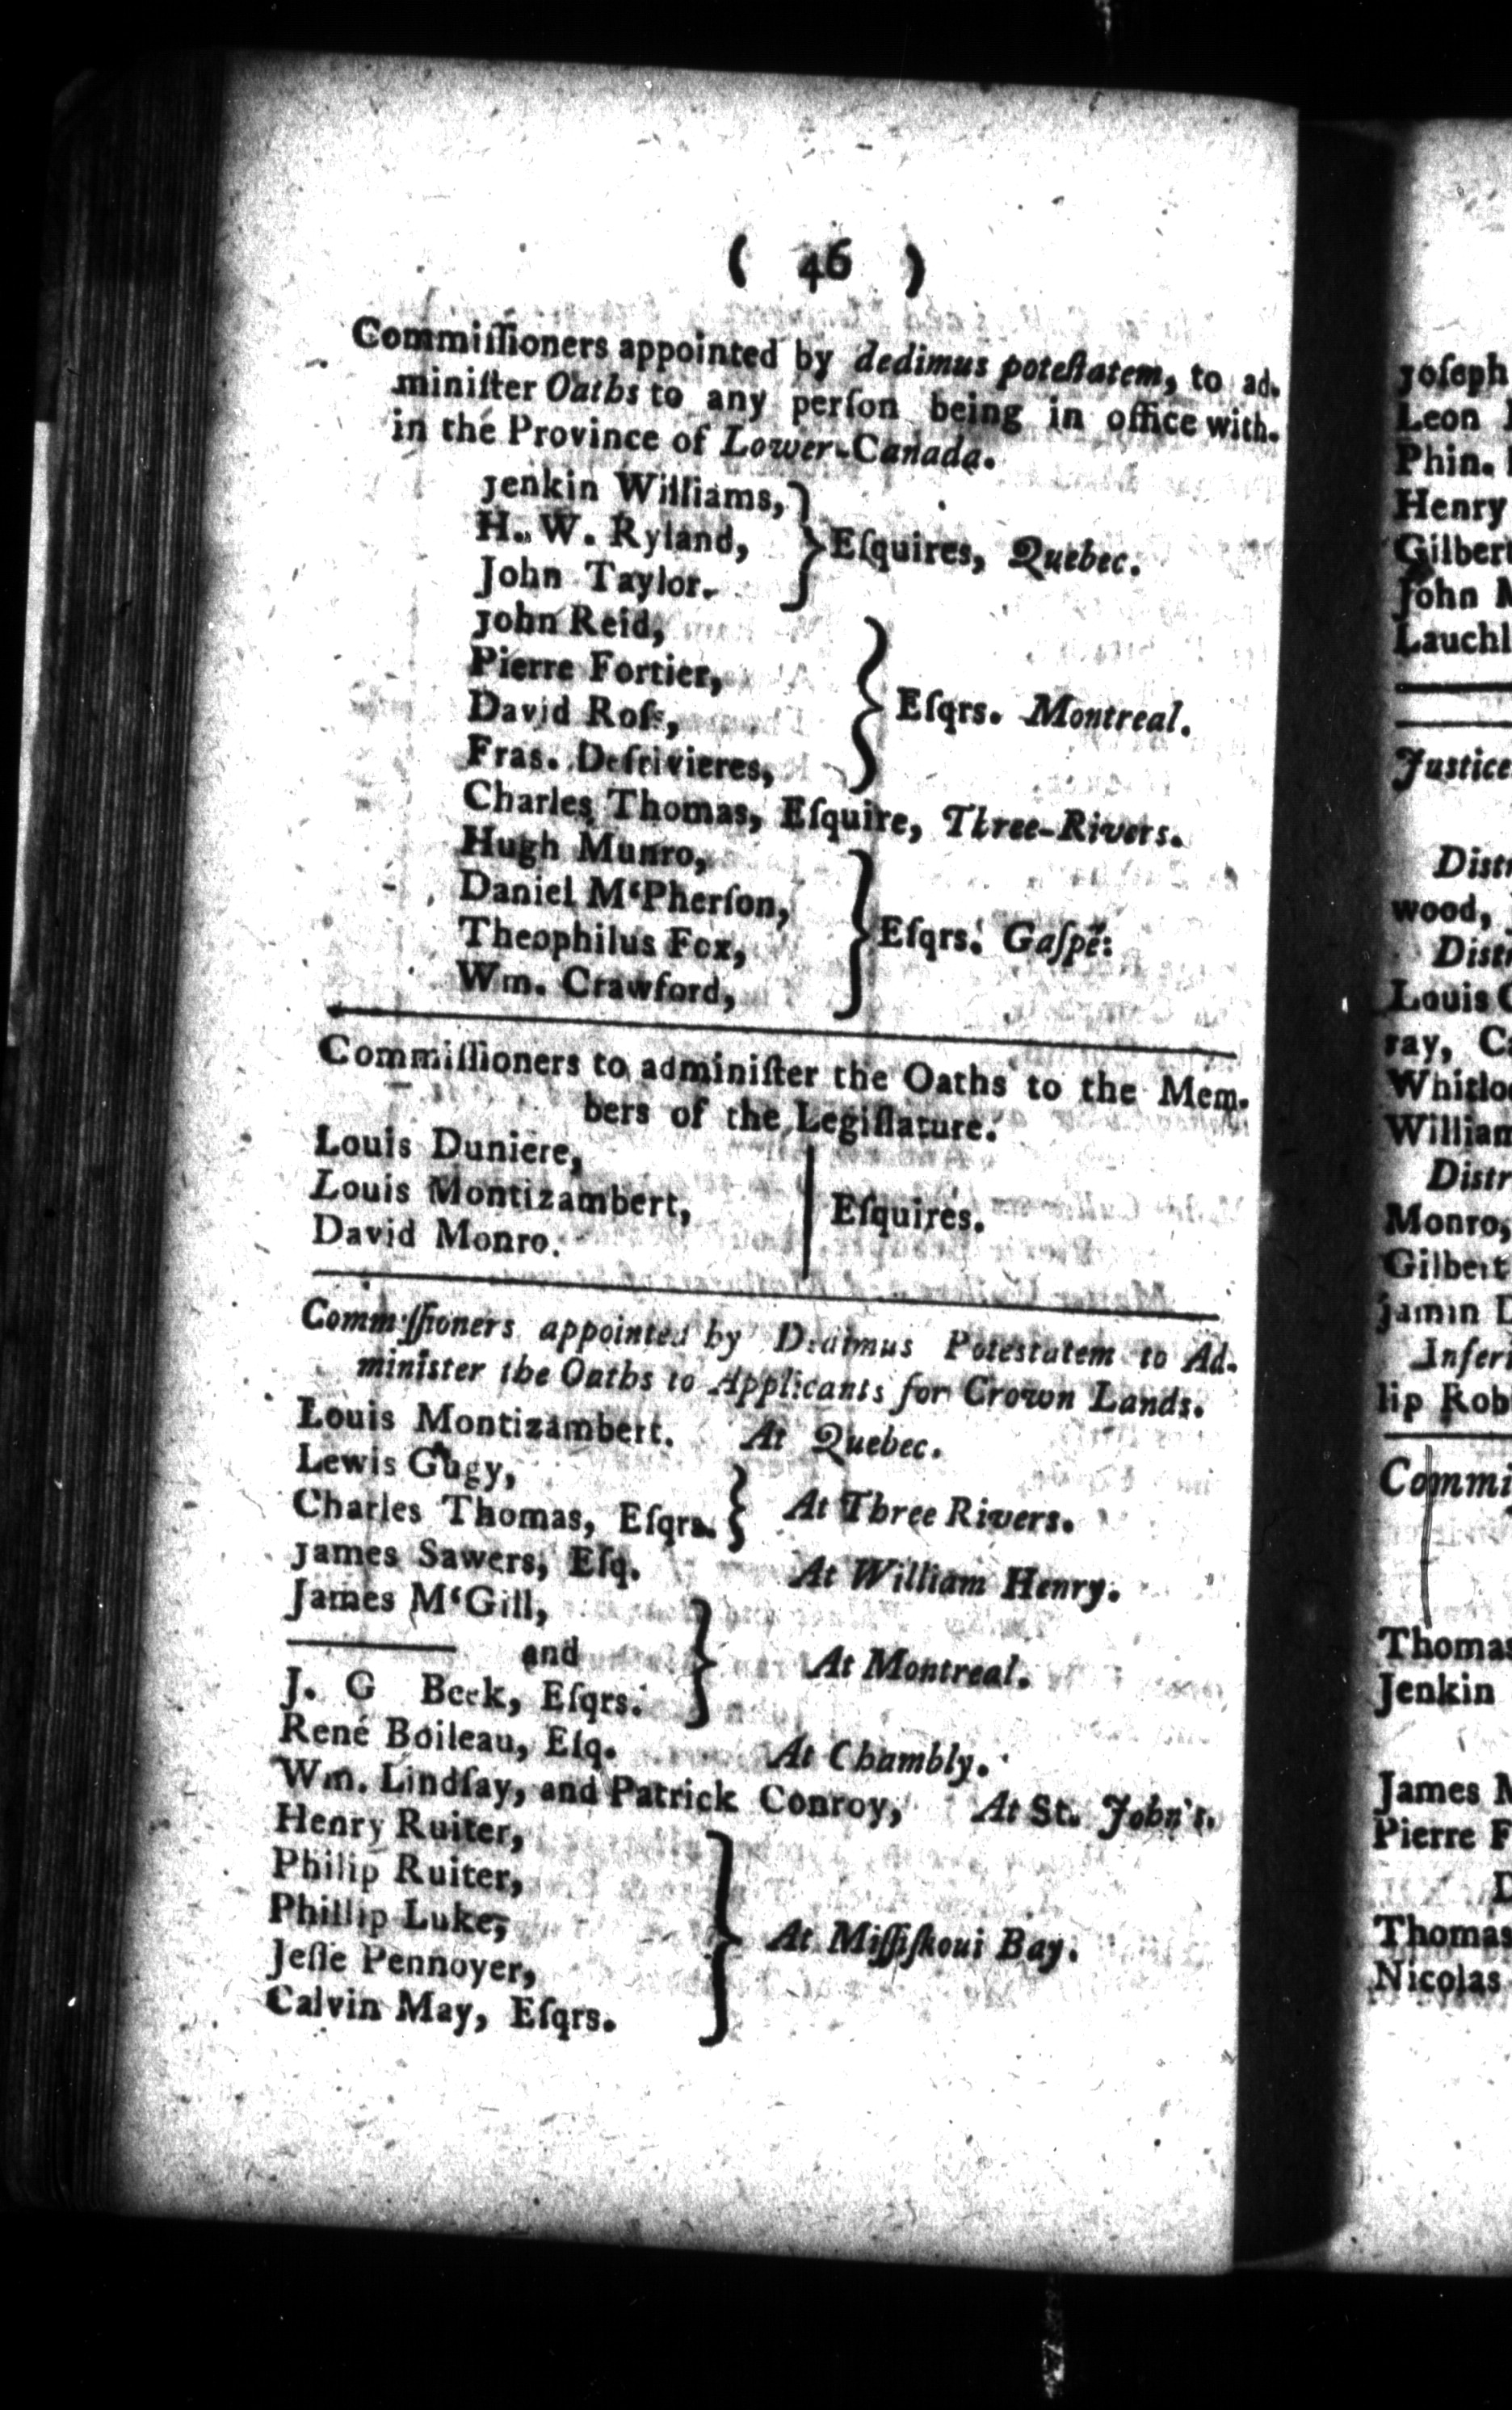 ( 46 )
Commiſſioners appointed by dedimus poteſtatem, to ad-
miniſter Oaths to any perſon being in office with-
in the Province of Lower-Canada.
Jenkin Williams,
H. W. Ryland, Eſquires, Quebec.
John Taylor.
John Reid,
Pierre Fortier,
David Roſs, Eſqrs. Montreal.
Fras. Deſrivieres,
Charles Thomas, Eſquire, Three-Rivers.
Hugh Munro,
Daniel M‘Pherſon,
Theophilus Fox, Eſqrs. Gaſpé:
Wm. Crawford,
Commiſſioners to adminiſter the Oaths to the Mem-
bers of the Legiſlature.
Louis Duniere,
Louis Montizambert, Eſquires.
David Monro.
Commiſſioners appointed by Dedimus Potestatem to Ad-
minister the Oaths to Applicants for Crown Lands.
Louis Montizambert. At Quebec.
Lewis Gugy,
Charles Thomas, Eſqrs. At Three Rivers.
James Sawers, Eſq. At William Henry.
James M‘Gill,
and At Montreal.
J. G Beek, Eſqrs.
René Boileau, Eſq. At Chambly.
Wm. Lindſay, and Patrick Conroy, At St. John's.
Henry Ruiter,
Philip Ruiter,
Phillip Luke, At Miſſiſkoui Bay.
Jeſſe Pennoyer,
Calvin May, Eſqrs.
Joſeph
Leon
Phin.
Henry
Gilbert
John
Lauchl
Justice
Distr
wood,
Distr
Louis
ray,
Whitlo
William
Distr
Monro,
Gilbert
jamin
Inferi
lip Rob
Commi
Thomas
Jenkin
James
Pierre
Thomas
Nicolas